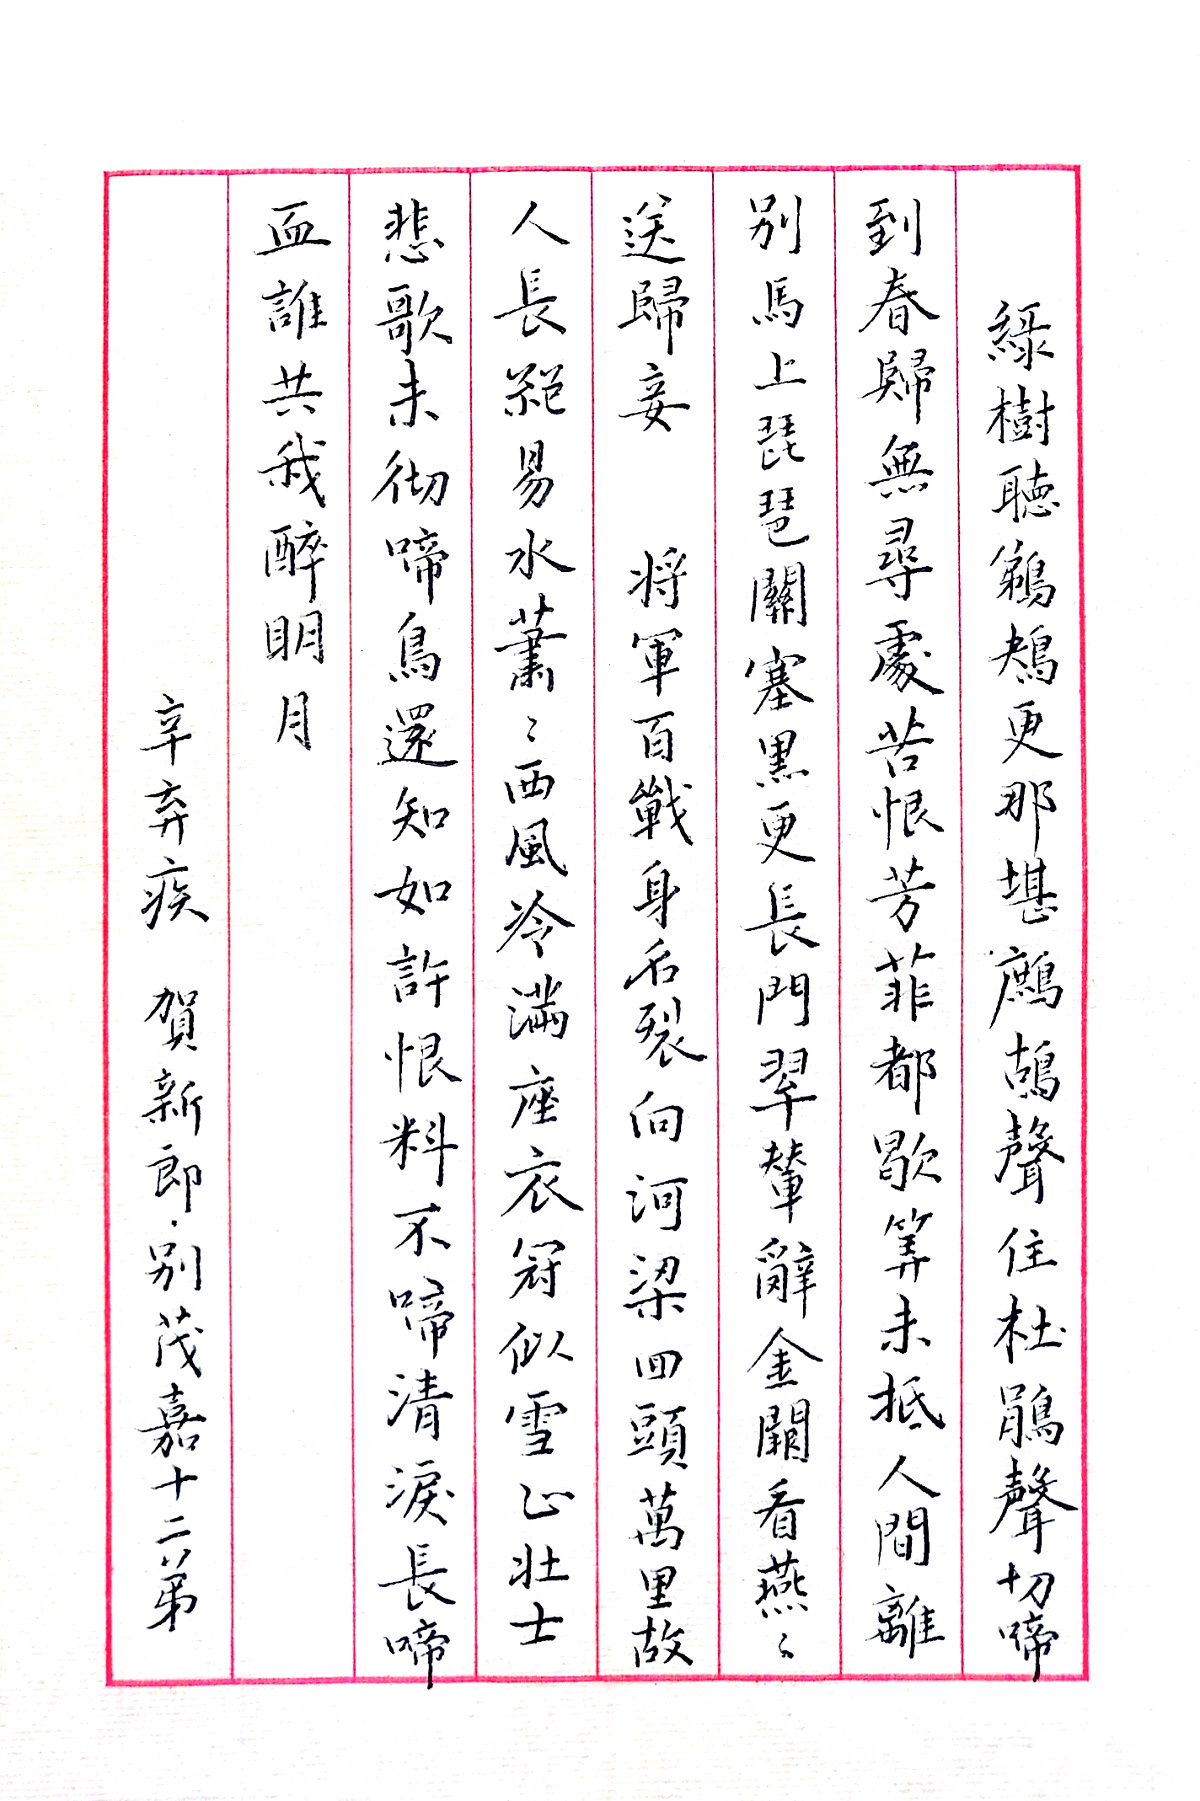 綠樹聽鵜鴂更那堪鷓鴣聲住杜鵑聲切啼
到春歸無尋處苦恨芳菲都歇算未抵人間離
別馬上琵琶關塞黑更長門翠輦辭金闕看燕〻
送歸妾 將軍百戰身名裂向河梁回頭萬里故
人長絕易水蕭〻西風冷滿座衣冠似雪正壯士
悲歌未徹啼鳥還知如許恨料不啼清淚長啼
血誰共我醉明月
辛弃疾 賀新郎·別茂嘉十二弟